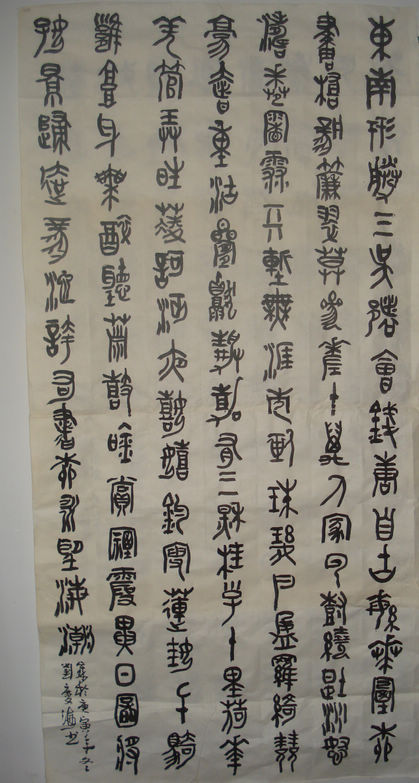 東南形勝三吳都會錢唐自古繁華煙柳
畫橋風簾翠幕參差十萬人家雲樹繞堤沙怒
濤卷霜雪天塹無涯市列珠璣戶盈羅綺競
豪奢重湖疊巘清嘉有三秋桂子十里荷花
羌管弄晴菱歌泛夜嬉嬉釣叟蓮娃千騎
擁高牙乘醉聽簫鼓吟賞煙霞異日圖將
好景歸去鳳池誇 書柳永望海潮
於庚寅年冬
劉慶海书